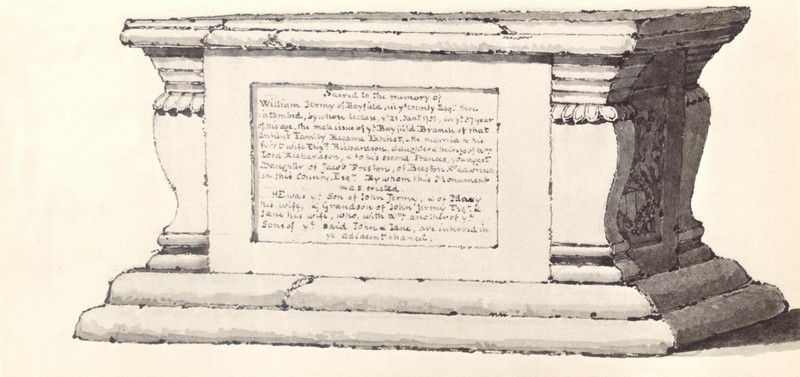 Sacred to the memory of
William Jermy of Bayfield, in yᵉ County Esqʳ. Here
intombed, by whose decease, yᵉ 21, Janʸ 1751, in yᵉ 37 year
of his age, the male issue of yᵉ Bayfield Branch of that
Antient Family Became Extinct, He married to his
first wife Elizᵗʰ Richardson, daughter & heiress of Wᵐ
Lord Richardson, & to his second Frances, youngest
Daughter of Jacob Preston, of Beeston Sᵗ Lawrence
in this County, Esqʳ. By whom this Monument
was erected.
HE was yᵉ Son of John Jermy, & of Mary
his wife, & Grandson of John Jermy Esqʳ &
Jane his wife, who, with Wᵐ another of yᵉ
Sons of yᵉ said John & Jane, are interred in
ye adjacent chancel.